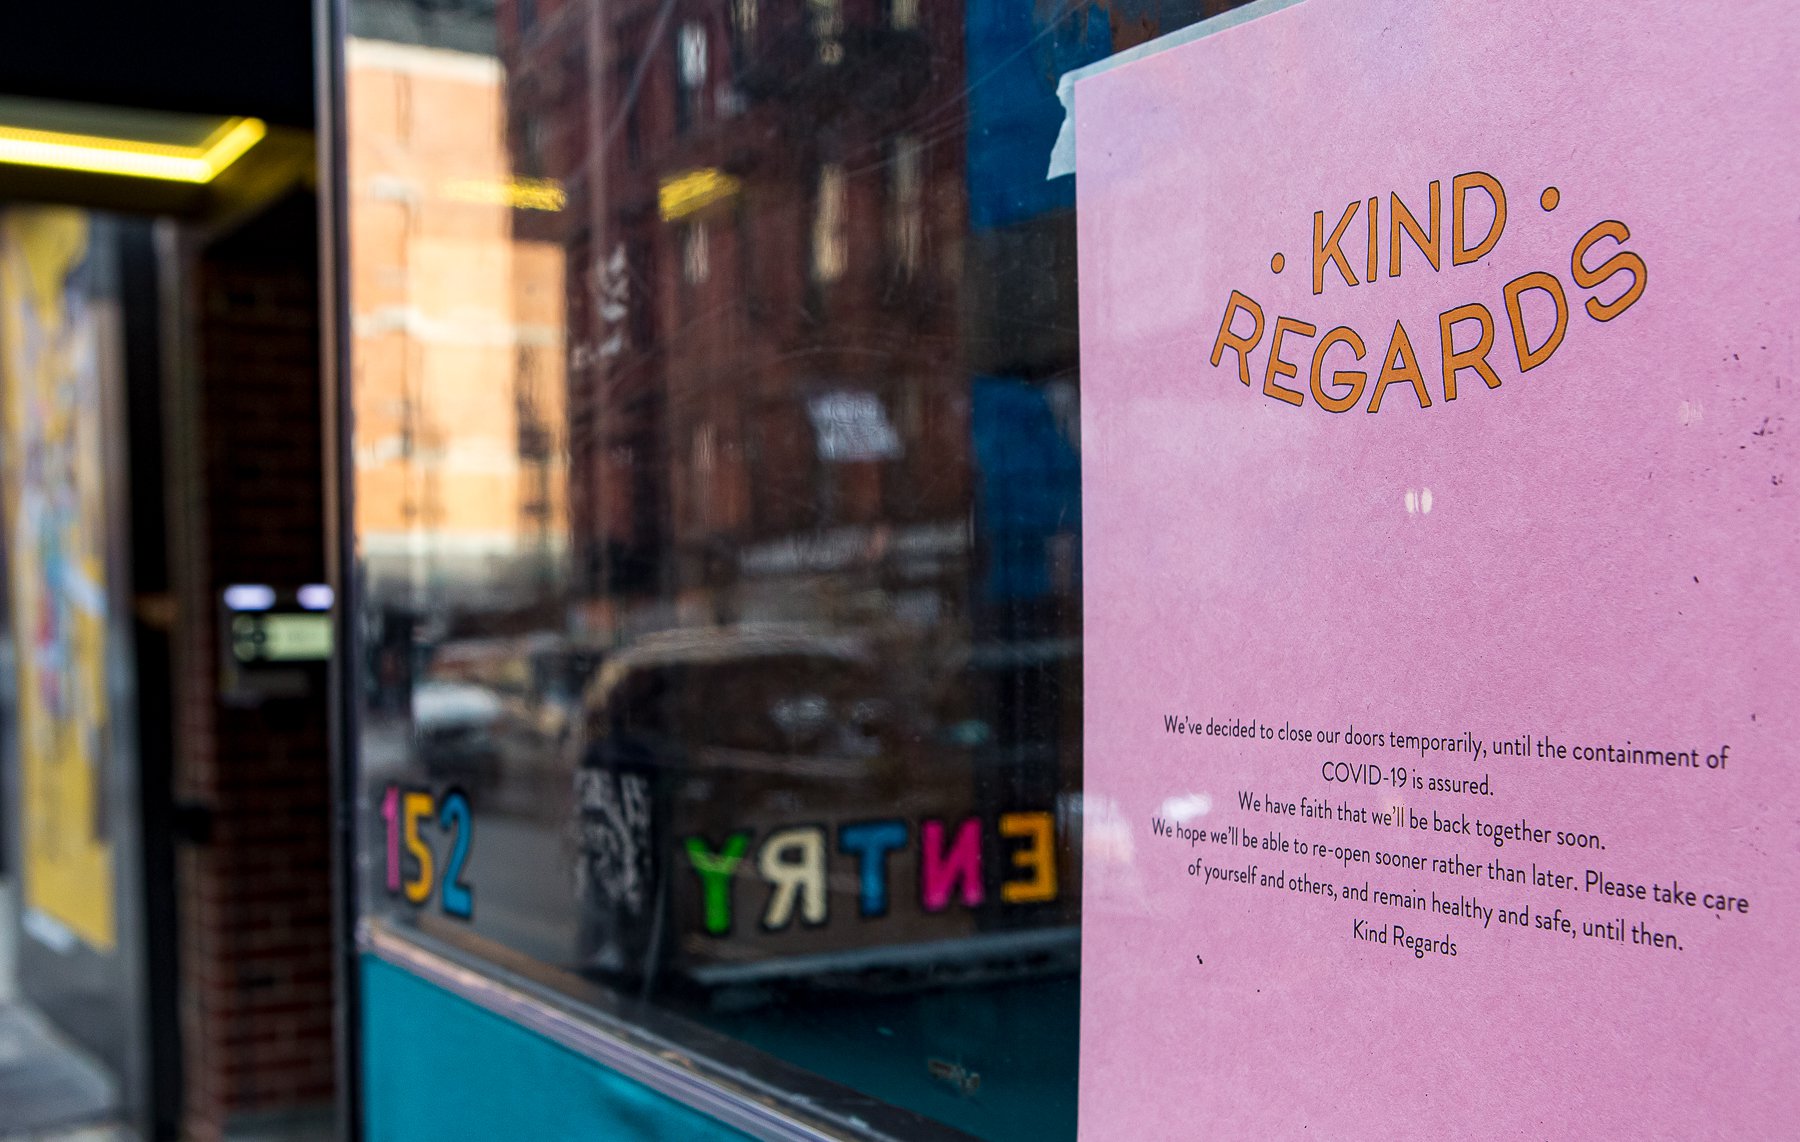 152
ENTRY
• KIND •
REGARDS
We've decided to close our doors temporarily, until the containment of
COVID-19 is assured.
We have faith that we'll be back together soon.
We hope we'll be able to re-open sooner rather than later. Please take care
of yourself and others, and remain healthy and safe, until then.
Kind Regards